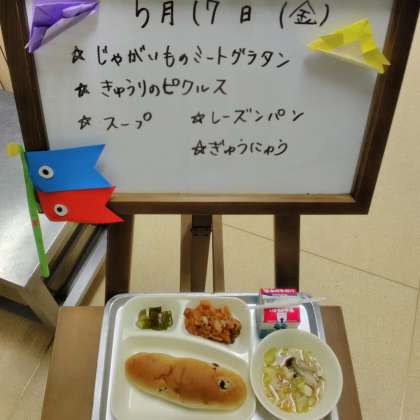 5月17日（金）
☆じゃがいものミートグラタン
☆きゅうりのピクルス
☆スープ ☆レーズンパン
☆ぎゅうにゅう